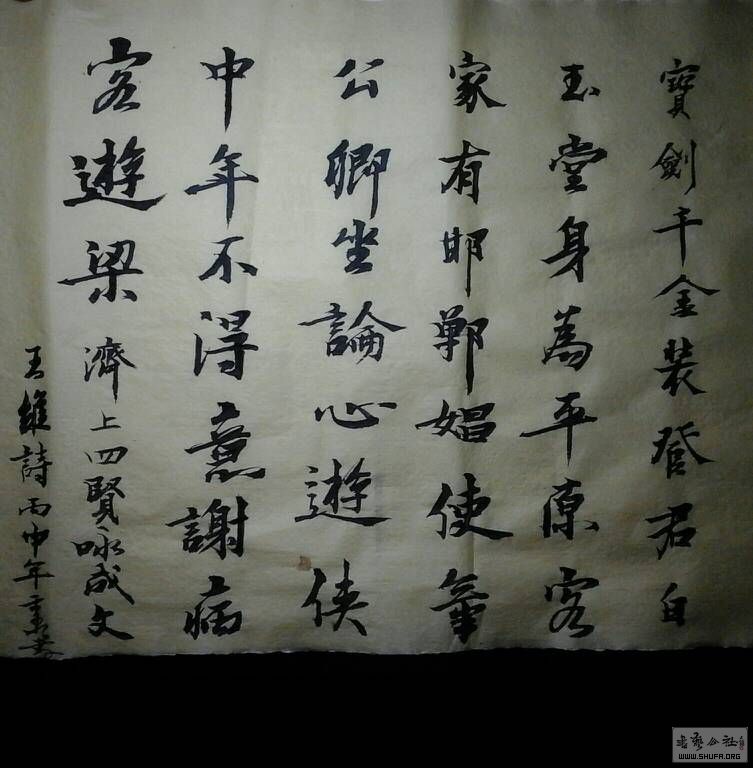 寶劍千金裝登君白
玉堂身為平原客
家有邯鄲娼使氣
公卿坐論心遊俠
中年不得意謝病
客遊梁濟上四賢咏成文
王維詩丙申年書
WWW.SHUFA.ORG